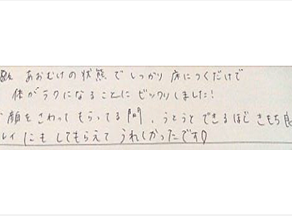 あおむけの状態でしっかり床につくだけで
体がラクになることにビックリしました！
お顔をさわってもらってる間、うとうとできるほどきもち良
レイにもしてもらえてうれしかったです♡